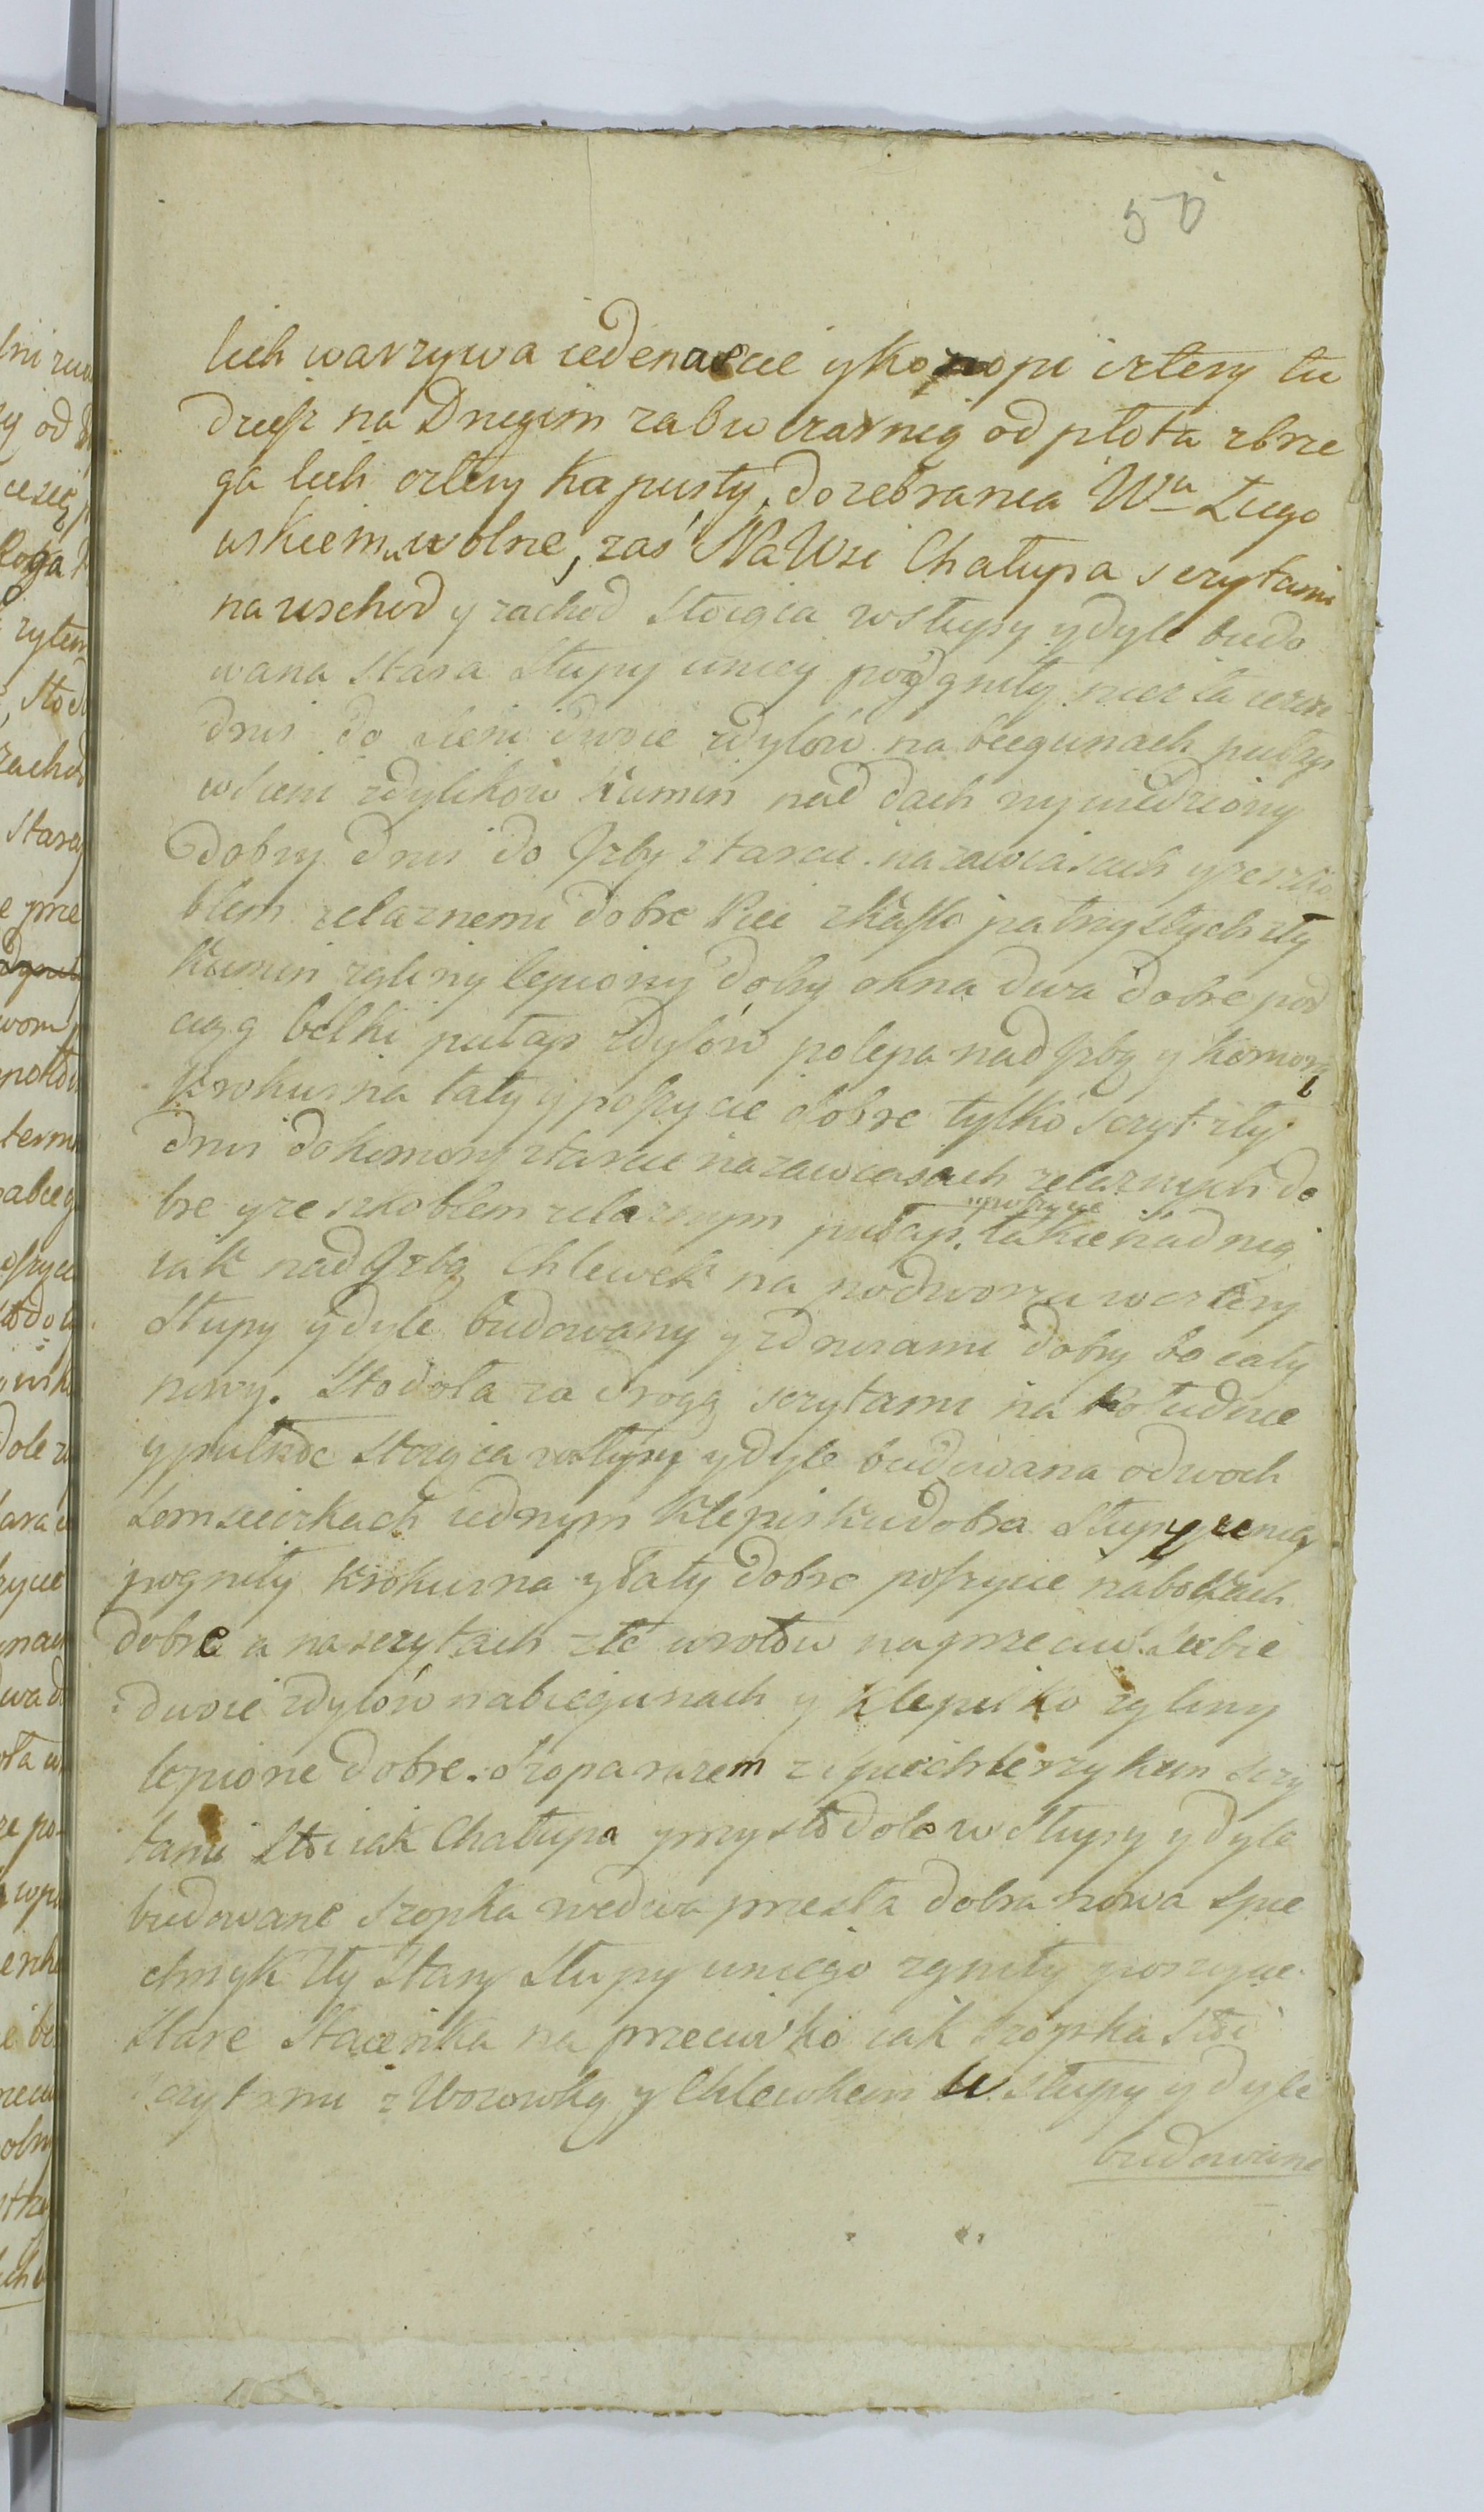 50
lich warzywa iedenascie y konopi cztery tu
dziesz na Drugim zabworarnią od płota zbrze
ga lich cztery kapusty, do zebrania Wu Ługo
wskiemu wolne, zaś Na Wsi Chałupa sczytami
na wschod y zachod stoiąca wsłupy y dyle budo
wana stara słupy uniey podgniły
drwi do Sieni dwoie zdylów na biegunach pułap
wsieni zdylików kumin nad dach wywiedziony
dobry drwi do Izby z tarcic na zawiasach y zeszko
blem zelaznemi dobre Piec zkafli patrzystych zły
kumin zgliny lepiony dobry okna dwa dobre pod
ciąg belki pułap zdylów polepa nad Izbą y komorą
krokwi na łaty y poszycie dobre tylko sczyt zły
drwi do komory ztarcic na zawiasach zelaznych do
bre y ze szkoblem zelaznym pułap yposzycie takie nad nią
iak nad Izbą Chlewek na podworzu wcztery
słupy y dyle budowany y zdrwiami dobry bo cały
nowy. Stodoła za drogą sczytami na Południe
y pułnoc stoiąca wsłupy y dyle budowana odwoch
somsieczkach iednym klepisku dobra słupy uniey
pogniły krokwi na y łaty dobre poszycie nabokach
dobre a na sczytach złe wrotów naprzeciw siebie
dwoie zdylów nabiegunach y klepisko zgliny
lepione dobre. Szopa razem zspichlerzykiem sczy
tami stoi iak Chałupa y przystodole wsłupy y dyle
budowane szopka wedwa przesła dobra nowa spi
chrzyk zły stary słupy uniego zgniły poszycie
stare staienka na przeciwko iak szopka stoi
sczytami z Wozowką y Chlewkiem w słupy y dyle
budowane